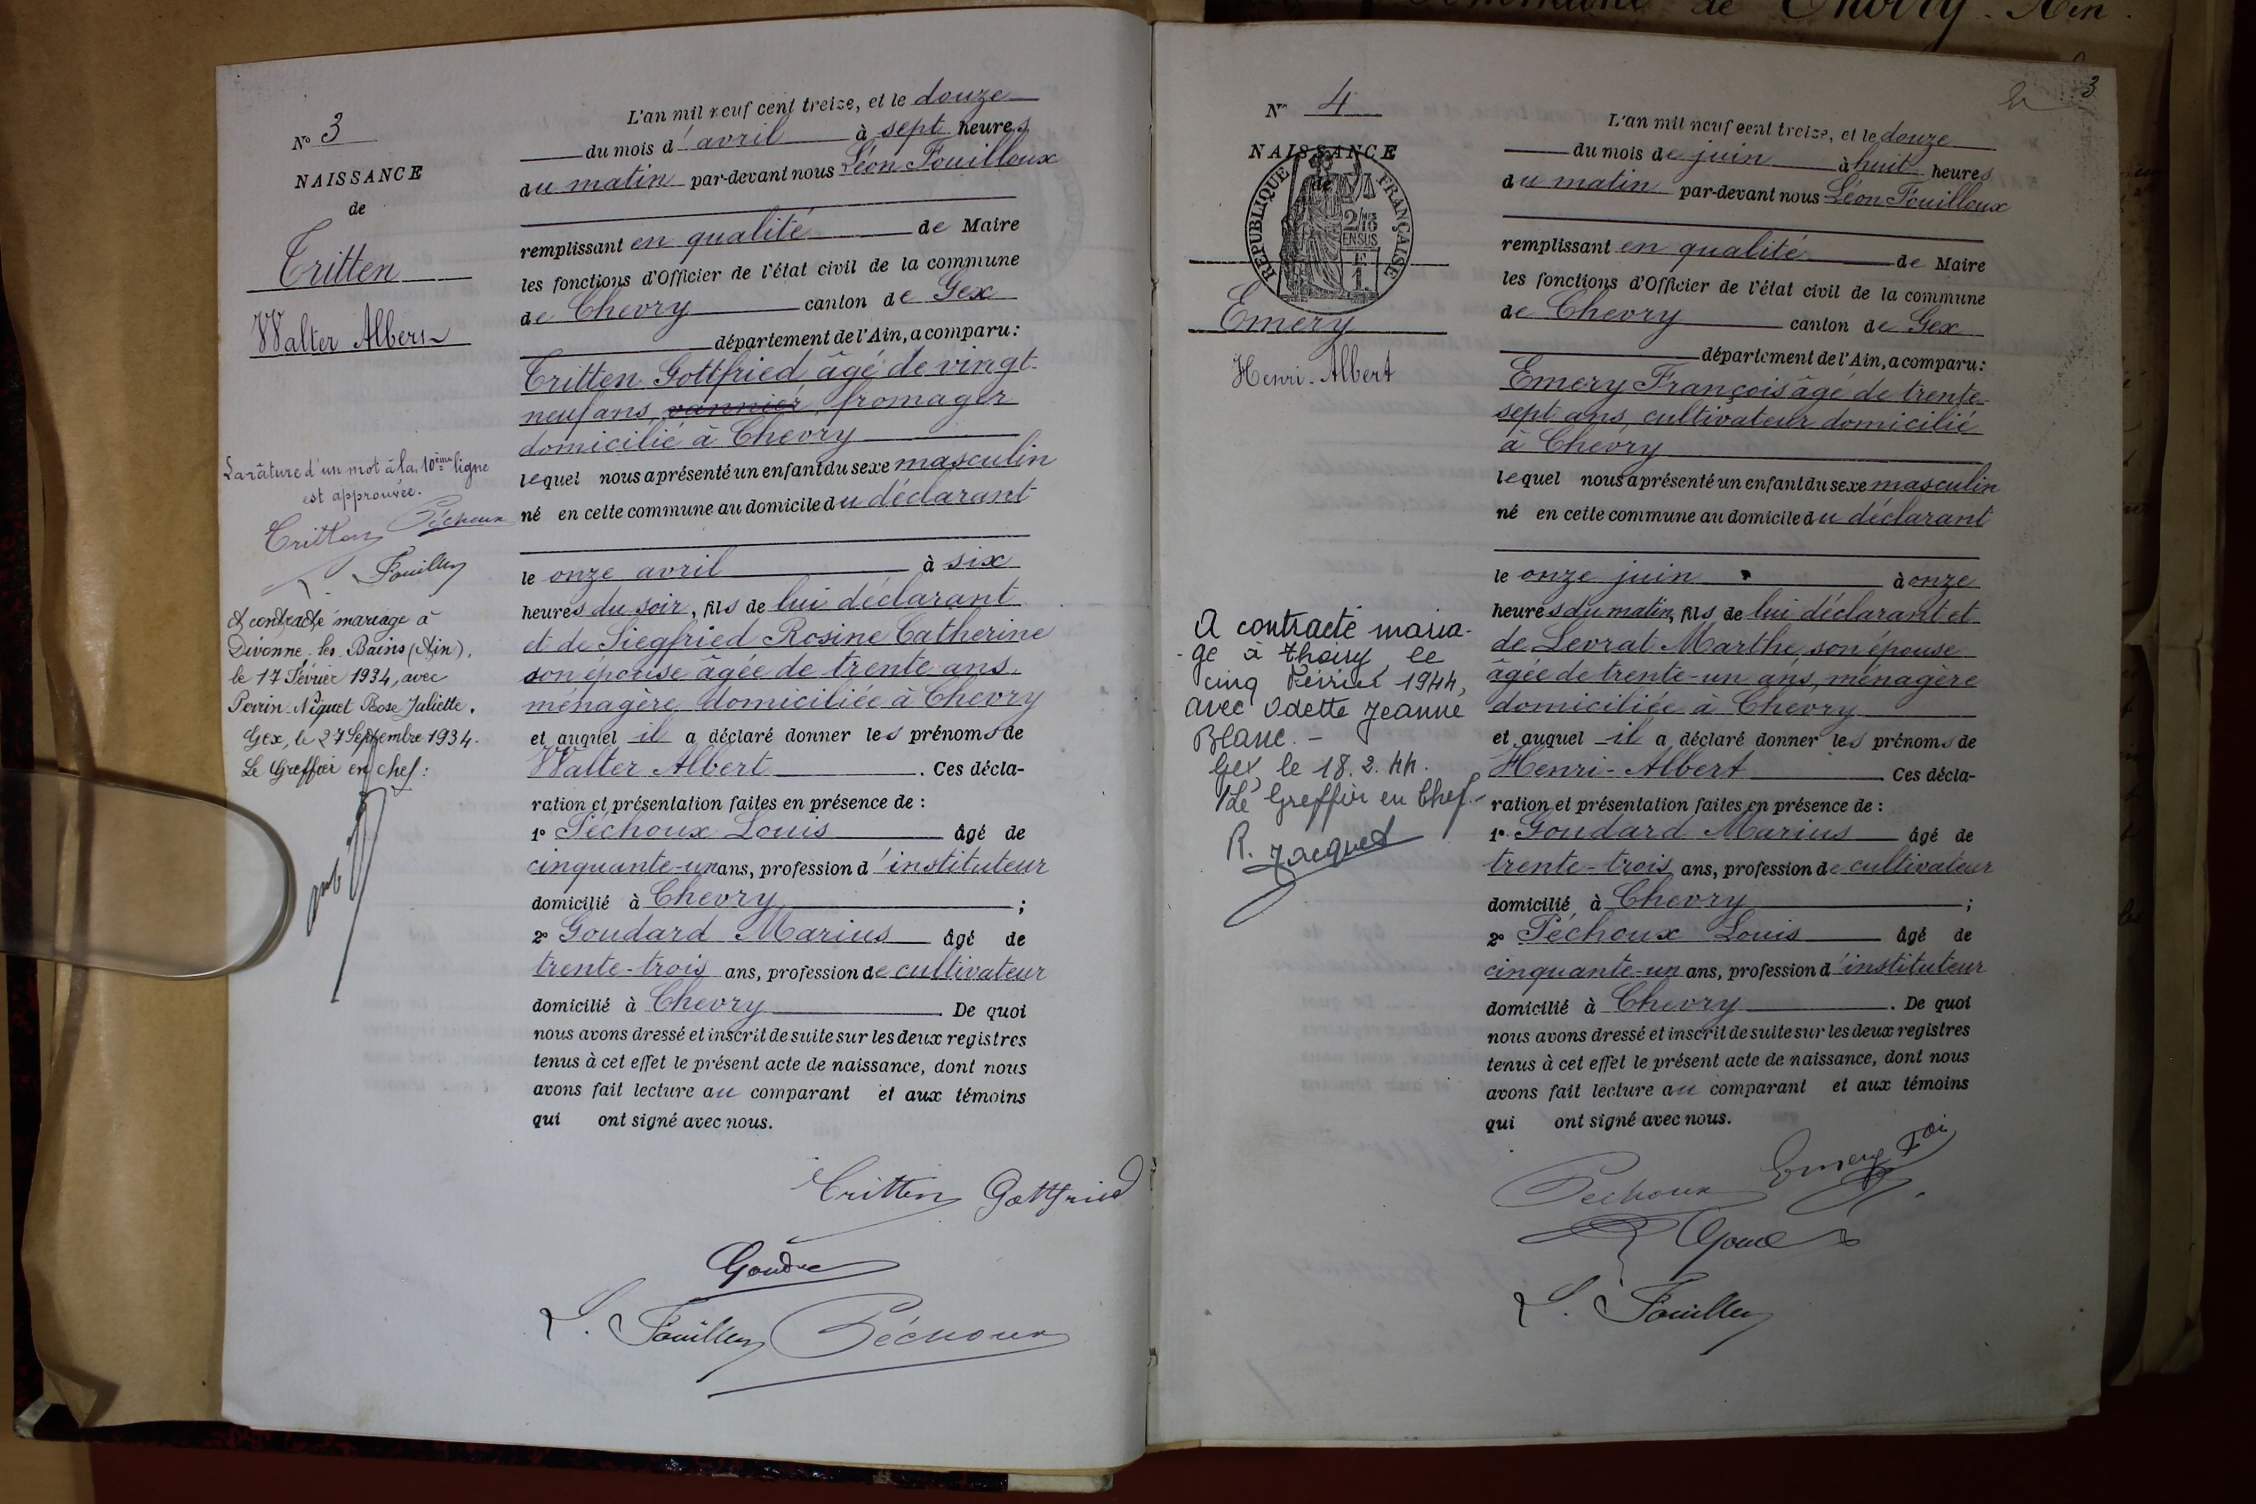 Commune de Chevry - Ain.
N° 3
NAISSANCE
de
Tritten
Walter Albert
La râture d'un mot à la 10ème ligne
est approuvée.
Tritten Péchoux
Fouilloux
A contracté mariage à
Divonne-les-Bains (Ain),
le 17 Février 1934, avec
Perrin-Niquet Rose Juliette.
Gex, le 27 Septembre 1934.
Le Greffier en chef:
L'an mil neuf cent treize, et le douze
du mois d'avril à sept heures
du matin par-devant nous Léon Fouilloux
remplissant en qualité de Maire
les fonctions d'Officier de l'état civil de la commune
de Chevry canton de Gex
département de l'Ain, a comparu:
Tritten Gottfried âgé de vingt-
neuf ans, vannier, fromager
domicilié à Chevry
lequel nous a présenté un enfant du sexe masculin
né en cette commune au domicile du déclarant
le onze avril à six
heures du soir, fils de lui déclarant
et de Siegfried Rosine Catherine
son épouse âgée de trente ans,
ménagère domiciliée à Chevry
et auquel il a déclaré donner les prénoms de
Walter Albert. Ces décla-
ration et présentation faites en présence de:
1° Péchoux Louis âgé de
cinquante-un ans, profession d'instituteur
domicilié à Chevry;
2° Goudard Marius âgé de
trente-trois ans, profession de cultivateur
domicilié à Chevry. De quoi
nous avons dressé et inscrit de suite sur les deux registres
tenus à cet effet le présent acte de naissance, dont nous
avons fait lecture au comparant et aux témoins
qui ont signé avec nous.
Tritten Gottfried
L. Fouilloux Péchoux
3
N° 4
NAISSANCE
de
RÉPUBLIQUE FRANÇAISE
2/10mes
EN SUS
1F
Emery
Henri-Albert
A contracté maria-
-ge à Thoiry, le
cinq Février 1944,
avec Odette Jeanne
Blanc.-
Gex, le 18.2.44.
Le Greffier en Chef.-
R. Jacquet
L'an mil neuf cent treize, et le douze
du mois de juin à huit heures
du matin par-devant nous Léon Fouilloux
remplissant en qualité de Maire
les fonctions d'Officier de l'état civil de la commune
de Chevry canton de Gex
département de l'Ain, a comparu:
Emery François âgé de trente-
sept ans, cultivateur domicilié
à Chevry
lequel nous a présenté un enfant du sexe masculin
né en cette commune au domicile du déclarant
le onze juin à onze
heures du matin, fils de lui déclarant et
de Levrat Marthe, son épouse
âgée de trente-un ans, ménagère
domiciliée à Chevry
et auquel il a déclaré donner les prénoms de
Henri-Albert Ces décla-
ration et présentation faites en présence de:
1° Goudard Marius âgé de
trente-trois ans, profession de cultivateur
domicilié à Chevry;
2° Péchoux Louis âgé de
cinquante-un ans, profession d'instituteur
domicilié à Chevry. De quoi
nous avons dressé et inscrit de suite sur les deux registres
tenus à cet effet le présent acte de naissance, dont nous
avons fait lecture au comparant et aux témoins
qui ont signé avec nous.
Péchoux Emery Foi
L. Fouilloux